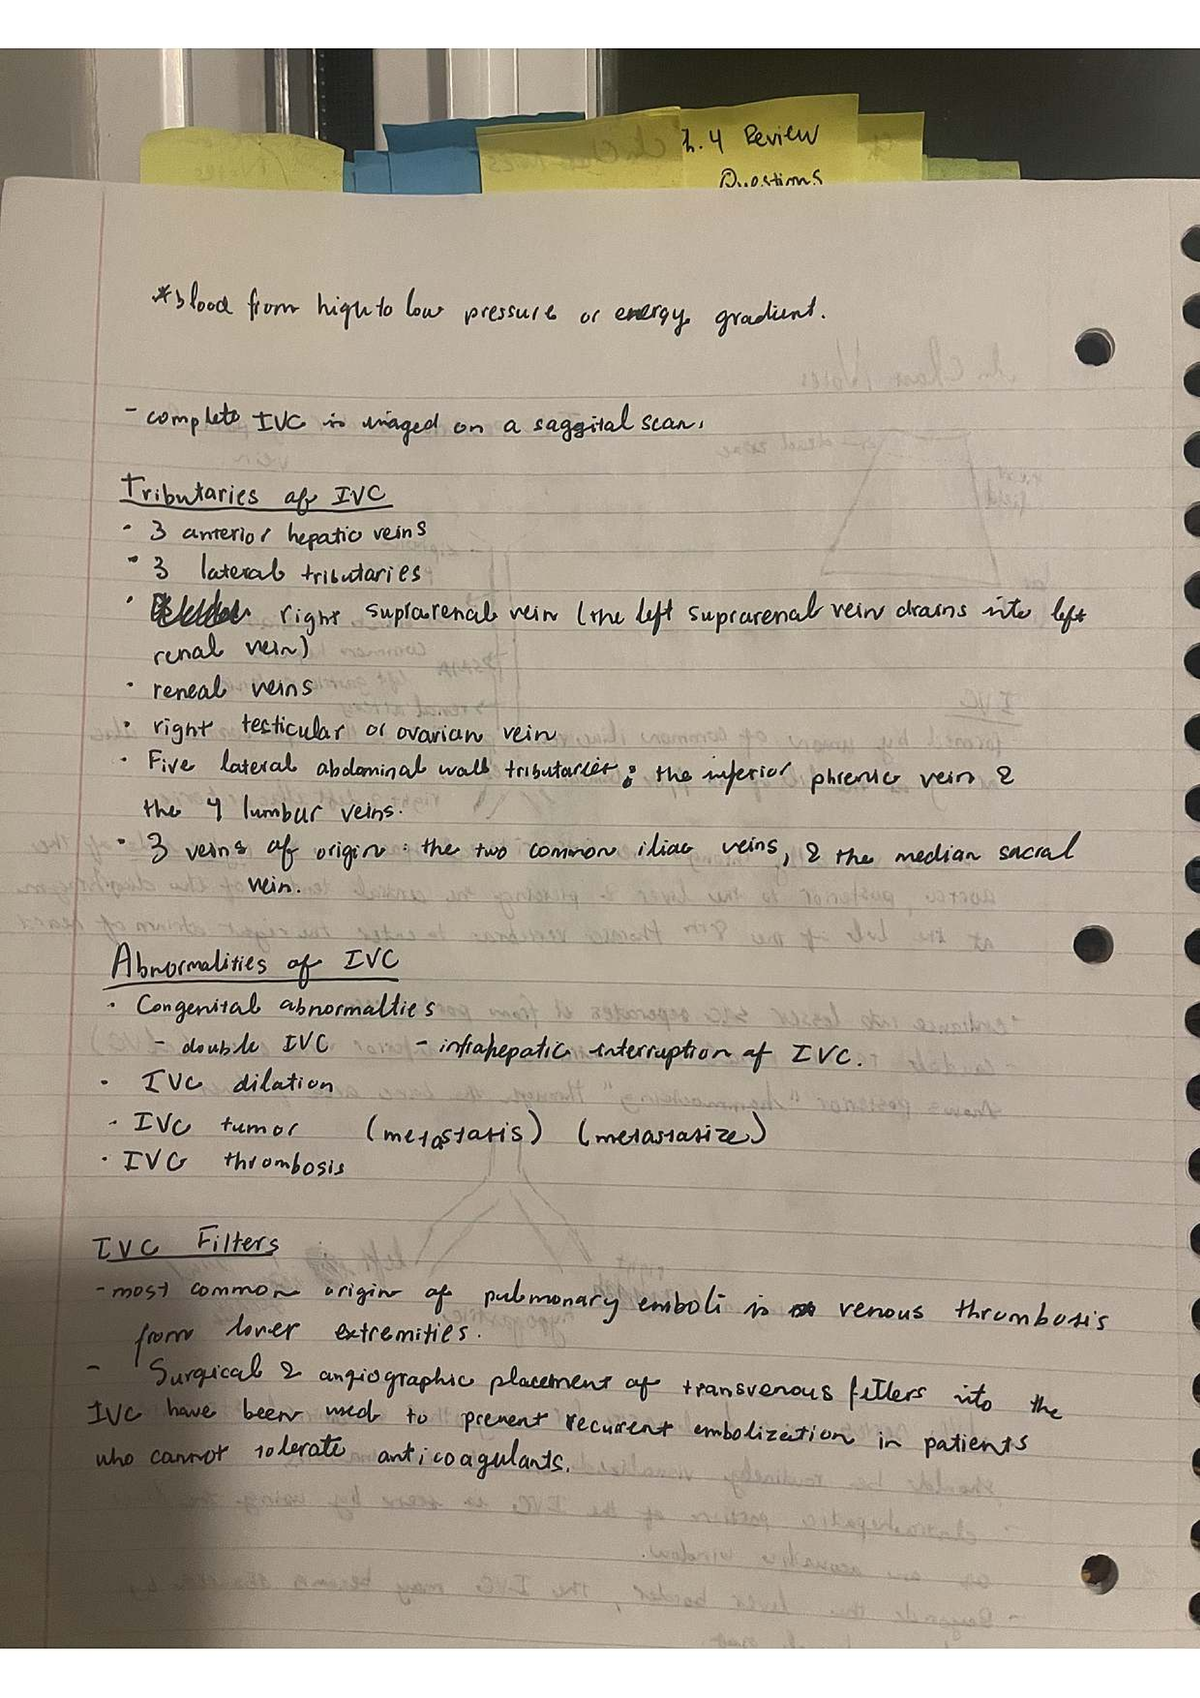 h. 4 Review
Questions
*blood from high to low pressure or energy gradient.
- complete IVC is imaged on a saggital scan.
Tributaries of IVC
· 3 anterior hepatic veins
· 3 lateral tributaries
· right suprarenal vein (the left suprarenal vein drains into left
renal vein)
· reneal veins
· right testicular or ovarian vein
· Five lateral abdominal wall tributaries: the inferior phrenic vein &
the 4 lumbar veins.
· 3 veins of origin: the two common iliac veins, & the median sacral
vein.
Abnormalities of IVC
· Congenital abnormalties
- double IVC - infrahepatic interruption of IVC.
· IVC dilation
· IVC tumor (metastasis) (metastasize)
· IVC thrombosis
IVC Filters
- most common origin of pulmonary emboli is venous thrombosis
from lower extremities.
- Surgical & angiographic placement of transvenous filters into the
IVC have been used to prevent recurrent embolization in patients
who cannot tolerate anticoagulants.